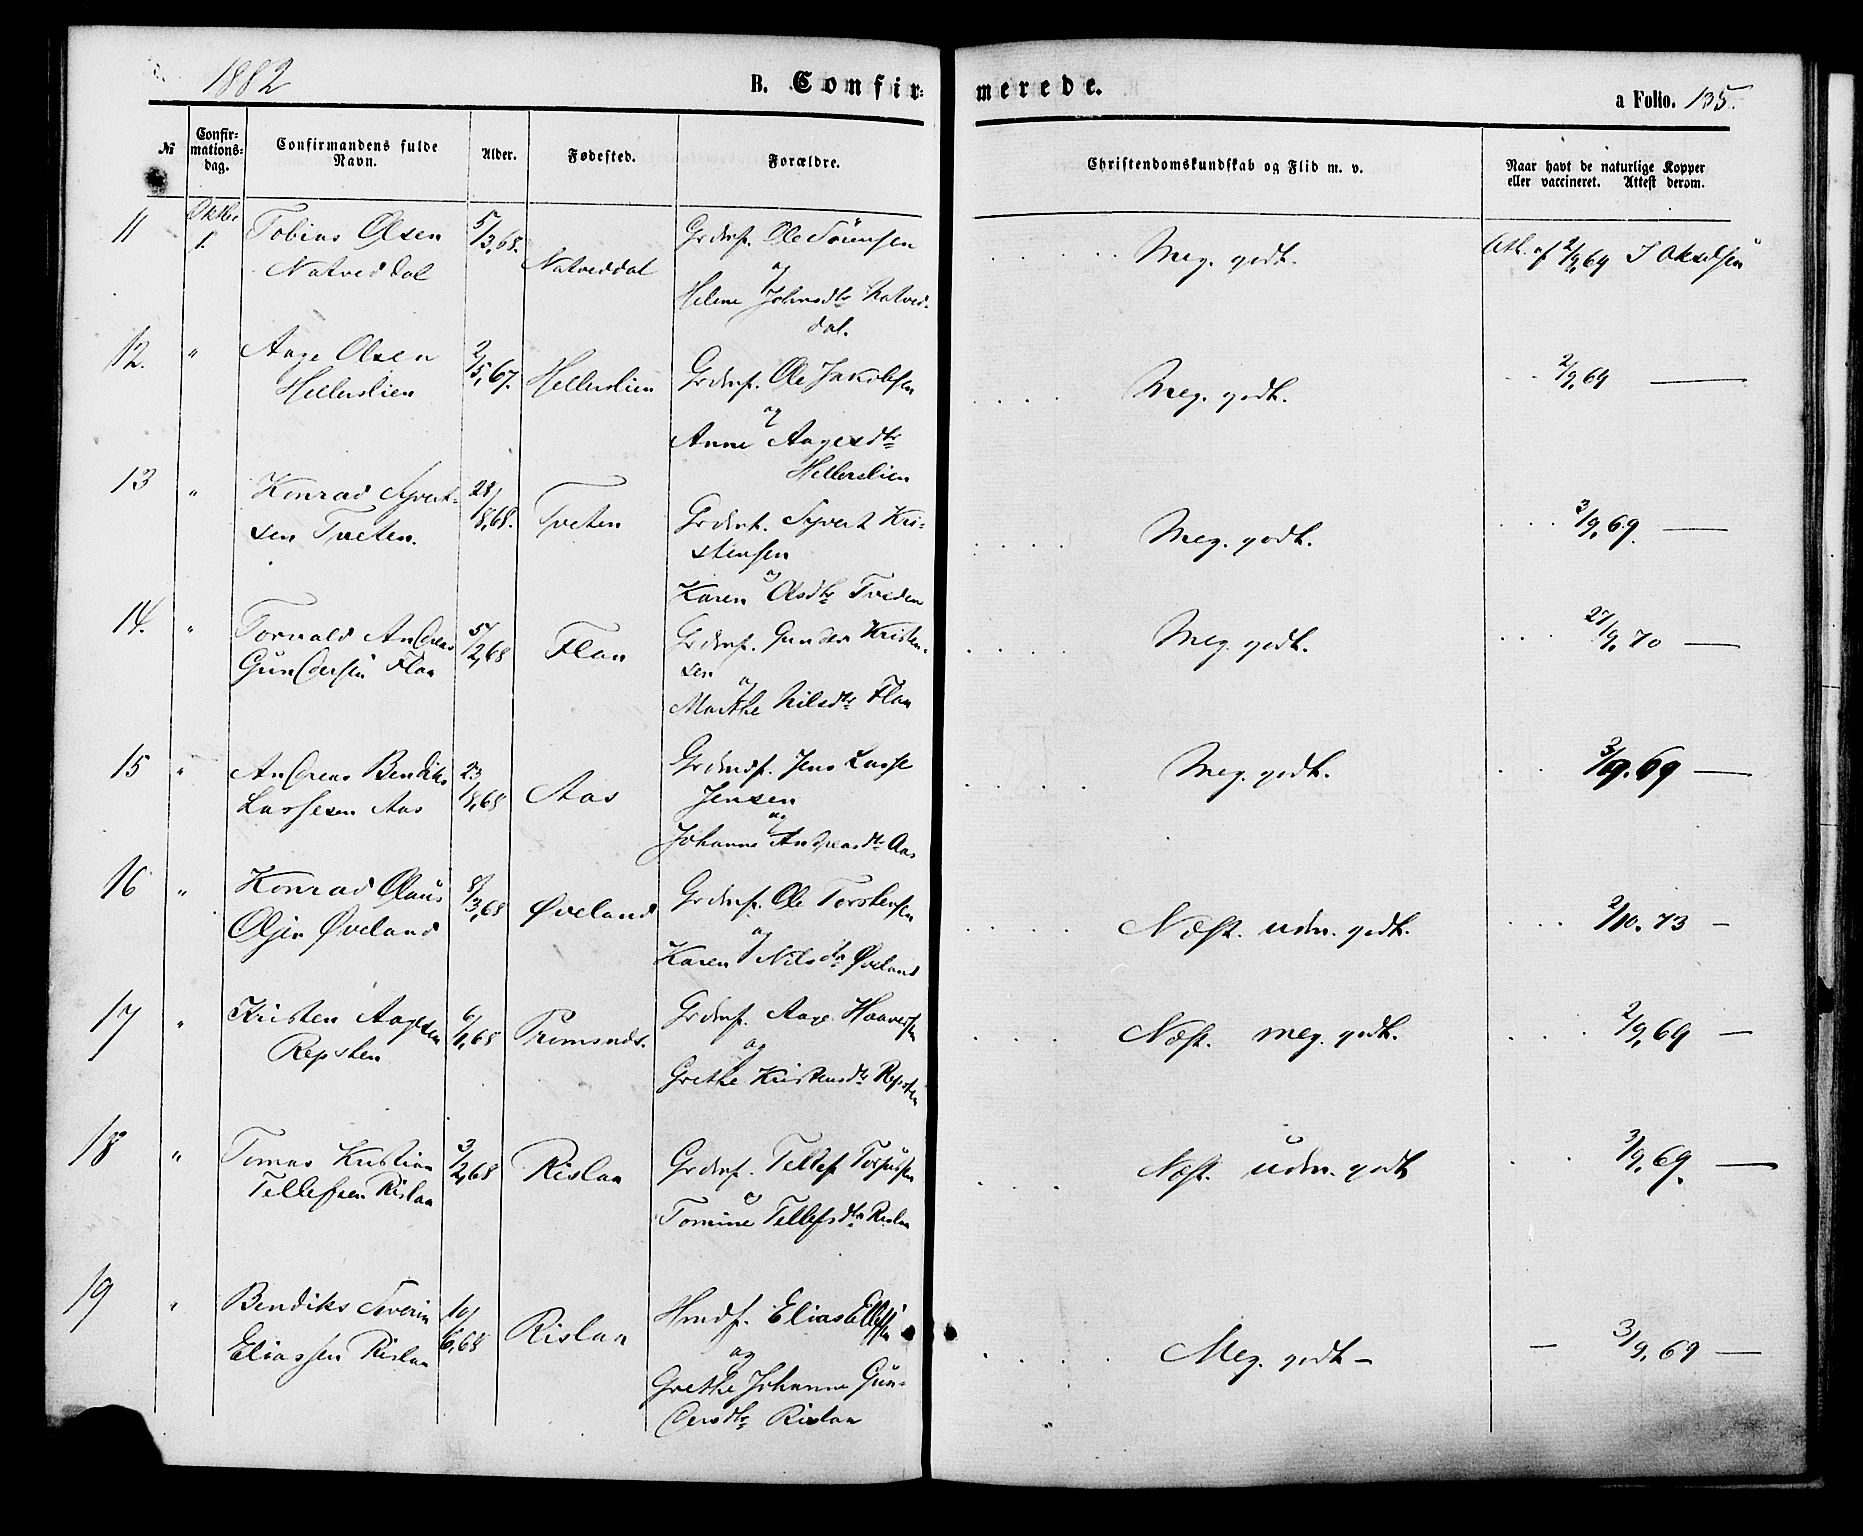 1882
B. Confirmerede.
a Folio. 135.
№
Confirmationsdag.
Confirmandens fulde Navn.
Alder.
Fødested.
Forældre.
Christendomskundskab og Flid m. v.
Naar havt de naturlige Kopper eller vaccineret. Attest derom.
11 Oktbr 1. Tobias Olsen 5/3,68. Natveddal Grdmf. Ole Sörensen . . . . . . Meg. godt. Att. af 2/9,69 I Akselsen
Natveddal og
Helene Johnsdtr Natved-
dal.
12. " Aage Olsen 2/5,67. Hellerslien Grdmf. Ole Jakobsen . . . . Meg. godt. . . . 2/9,69 —
Hellerslien og
Anne Aagesdtr
Hellerslien
13 " Konrad Syvert- 28/8,68. Tveten Grdmf. Syvert Kri- . . . . Meg. godt. . . . 3/9,69. —
sen Tveten. stensen
og
Karen Olsdtr Tveden
14. " Torvald Andreas 5/2,68 Flaa Grdmf. Gunder Kristen- . . . . Meg. godt. . . . 27/9,70 —
Gundersen Flaa sen
og
Marthe Nilsdtr Flaa
15 " Andreas Bendiks 23/8,68 Aas Grdmdf. Jens Lasse . . . . Meg. godt. . . 3/9.69 —
Lassesen Aas Jensen
og
Johanne Andreasdtr Aas
16 " Konrad Olaus 8/3,68 Øveland Grdmf. Ole Torstensen . . . . Næst. udm. godt. . . . 2/10.73 —
Olsen Øveland og
Karen Nilsdtr Øveland
17 " Kristen Aagesen 6/1,68 Tromsnds. Grdmf. Aage Haaversen . . . . Næst. meg. godt. . . . 2/9,69 —
Repsten og
Grethe Kristensdtr Repsten
18 " Tomas Kristian 3/2,68 Rislaa Grdmf. Tellef . . . Næst. udm. godt . . 3/9,69. —
Tellefsen Rislaa og
Tomine Tellefsdtr Rislaa
19 " Bendiks Severin 10/6,68 Rislaa Hmdf. Elias . . . . . Meg. godt — — 3/9,69 —
Eliassen Rislaa og
Grethe Johanne Gun-
dersdtr Rislaa